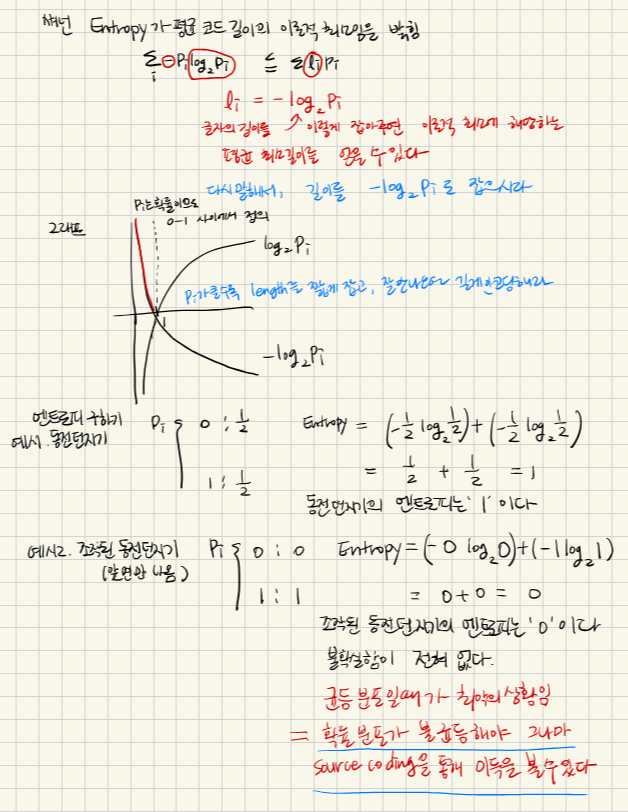 섀넌 Entropy가 평균 코드 길이의 이론적 최소임을 밝힘
Σ_i -Pi log₂Pi ≤ Σ li Pi
li = -log₂Pi
글자의 길이를 이렇게 잡아주면 이론적 최소에 해당하는
평균 최소길이를 얻을 수 있다
다시말해서, 길이를 -log₂Pi로 잡으시라
Pi는 확률이므로
0-1 사이에서 정의
그래프
log₂Pi
Pi가 클수록 length를 짧게 잡고, 잘 안나오면 길게 인코딩해라
1
-log₂Pi
엔트로피 구하기
예시. 동전던지기
Pi { 0 : 1/2
1 : 1/2
Entropy = (-1/2 log₂ 1/2) + (-1/2 log₂ 1/2)
= 1/2 + 1/2 = 1
동전던지기의 엔트로피는 '1' 이다
예시2. 조작된 동전던지기
(앞면만 나옴)
Pi { 0 : 0
1 : 1
Entropy = (-0 log₂0) + (-1 log₂1)
= 0 + 0 = 0
조작된 동전던지기의 엔트로피는 '0' 이다
불확실함이 전혀 없다.
균등 분포일때가 최악의 상황임
= 확률분포가 불균등해야 그나마
source coding을 통해 이득을 볼 수 있다